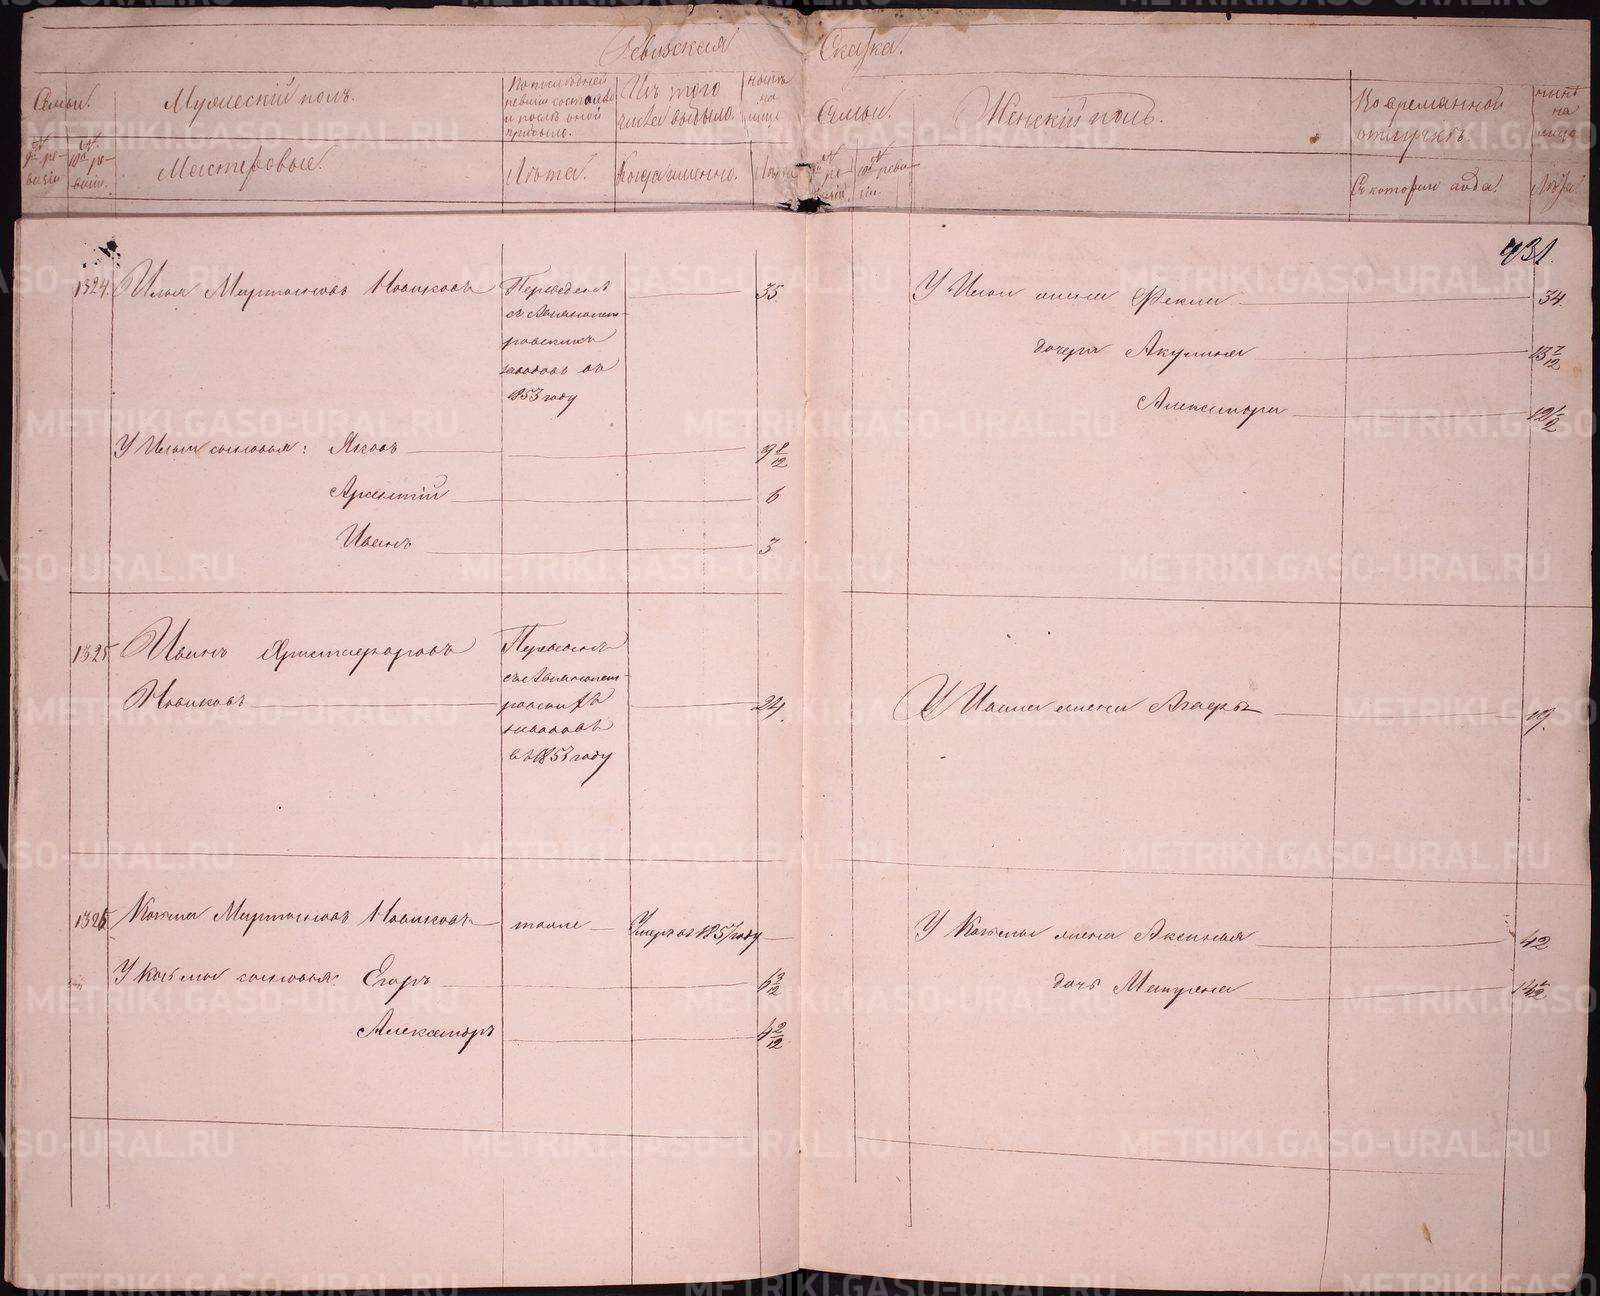 Ревизская Сказка.
Семьи.
Мужескій полъ.
По последней
ревизіи состояло
и после оной
прибыло.
Изъ того
числа выбыло.
ныне
на
лицо
Семьи.
Женскій полъ.
Во временной
отлучкѣ.
ныне
на
лицо
№
9й ре-
визіи
№
10й ре-
визіи.
Мастеровые.
Лѣта.
Когда именно.
Лѣта
№
ре-
визіи
№
реви-
зіи.
Съ котораго года.
Лѣта.
431.
1324. Илья Мартыновъ Новиковъ
Переведенъ
съ Авзянопет-
ровскихъ
заводовъ въ
1853 году
35
У Ильи жена Фекла 34.
дочери Акулина 13 7/12
Александра 12 1/2
У Ильи сыновья: Яковъ 9 8/12
Арсентій 6
Иванъ 3
1325. Иванъ Христофоровъ
Новиковъ
Переведенъ
съ Авзянопет-
ровскихъ
заводовъ
въ 1853 году
24.
У Ивана жена Агафья 19.
1326. Козьма Мартыновъ Новиковъ тоже Умеръ въ 1857 году
У Козьмы жена Аксинья 42
У Козьмы сыновья: Егоръ
дочь Матрена
Александръ 4 2/12
METRIKI.GASO-URAL.RU